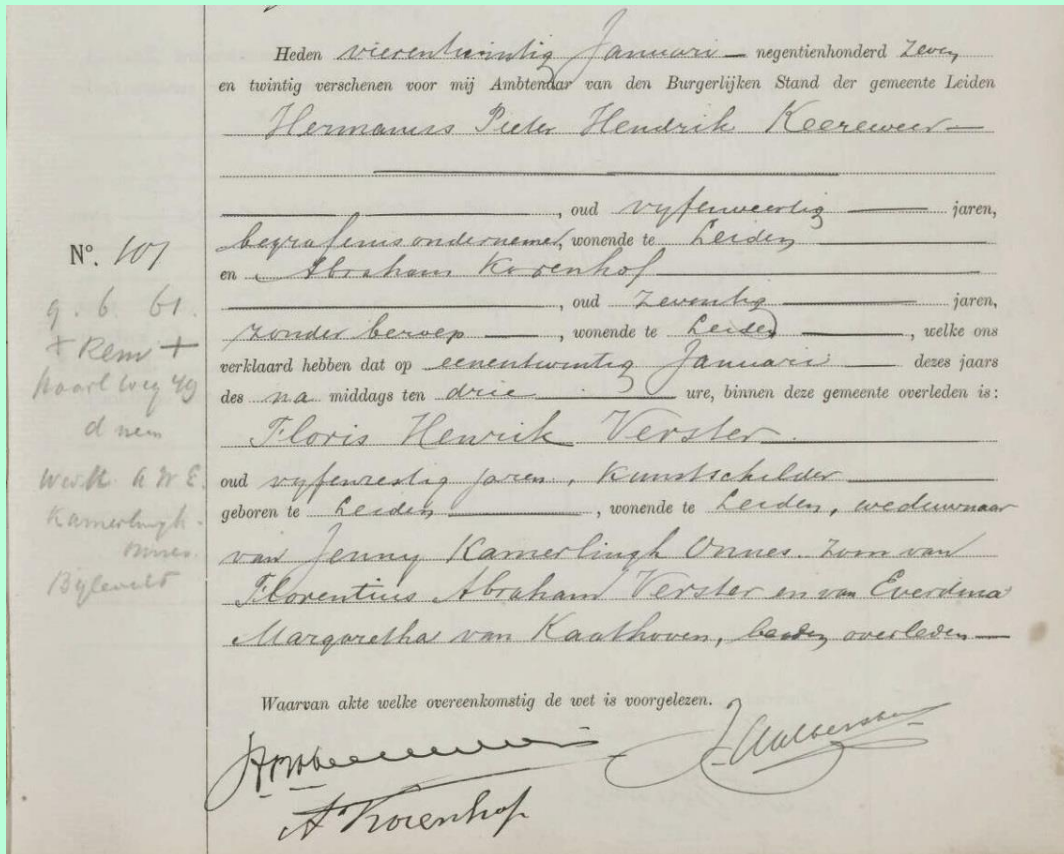 Heden vierentwintig Januari — negentienhonderd zeven
en twintig verschenen voor mij Ambtenaar van den Burgerlijken Stand der gemeente Leiden
Hermanus Pieter Hendrik Keereweer —
, oud vyfenveertig — jaren,
begrafenisondernemer, wonende te Leiden
en Abraham Korenhof
, oud zeventig — jaren,
zonder beroep —, wonende te Leiden —, welke ons
verklaard hebben dat op eenentwintig Januari — dezes jaars
des na middags ten drie — ure, binnen deze gemeente overleden is:
Floris Henrik Verster
oud vyfenzestig jaren, Kunstschilder
geboren te Leiden —, wonende te Leiden, weduwnaar
van Jenny Kamerlingh Onnes. Zoon van
Florentius Abraham Verster en van Everdina
Margaretha van Kaathoven, beiden overleden —
Waarvan akte welke overeenkomstig de wet is voorgelezen.
A Korenhof
Nº. 101
9. 6. 61.
Kamerlingh
Onnes.
Byleveld